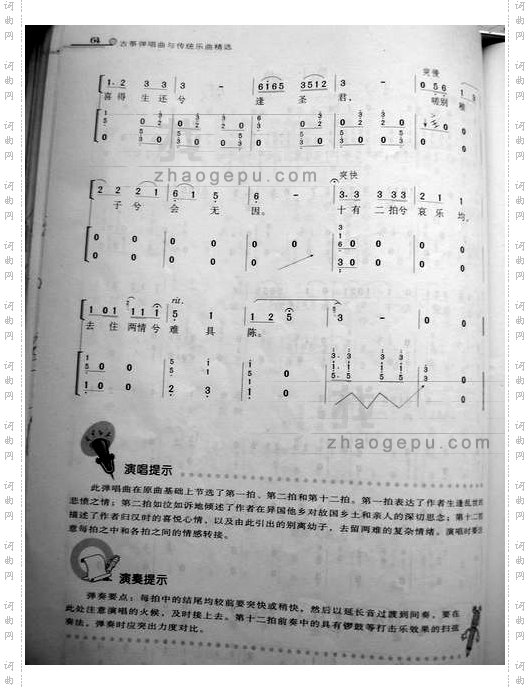 64 古筝弹唱曲与传统乐曲精选
突慢
1· 2 3 3 3 - 6165 3512 3 - 0 56 1
喜得生还兮 逢圣君， 嗟别稚
zhaogepu.com
突快
2 2 2 1 6 1 5 6 - 3· 3 3 3 3 2 1 1
子兮会无因。 十有二拍兮哀乐均，
0 0 0 0 0 0
rit.
1 01 1 1 1 5 1 1 2 5 3 - 0 0
去住两情兮难具陈。
zhaogepu.com
演唱提示
此弹唱曲在原曲基础上节选了第一拍、第二拍和第十二拍。第一拍表达了作者生逢乱世的
悲愤之情；第二拍如泣如诉地倾述了作者在异国他乡对故国乡土和亲人的深切思念；第十二拍
描述了作者归汉时的喜悦心情，以及由此引出的别离幼子，去留两难的复杂情绪。演唱时要注
意每拍之中和各拍之间的情感转接。
演奏提示
弹奏要点：每拍中的结尾均较前要突快或稍快，然后以延长音过渡到间奏，要在
此处注意演唱的火候，及时接上去。第十二拍前奏中的具有锣鼓等打击乐效果的扫弦
奏法，弹奏时应突出力度对比。
词曲网